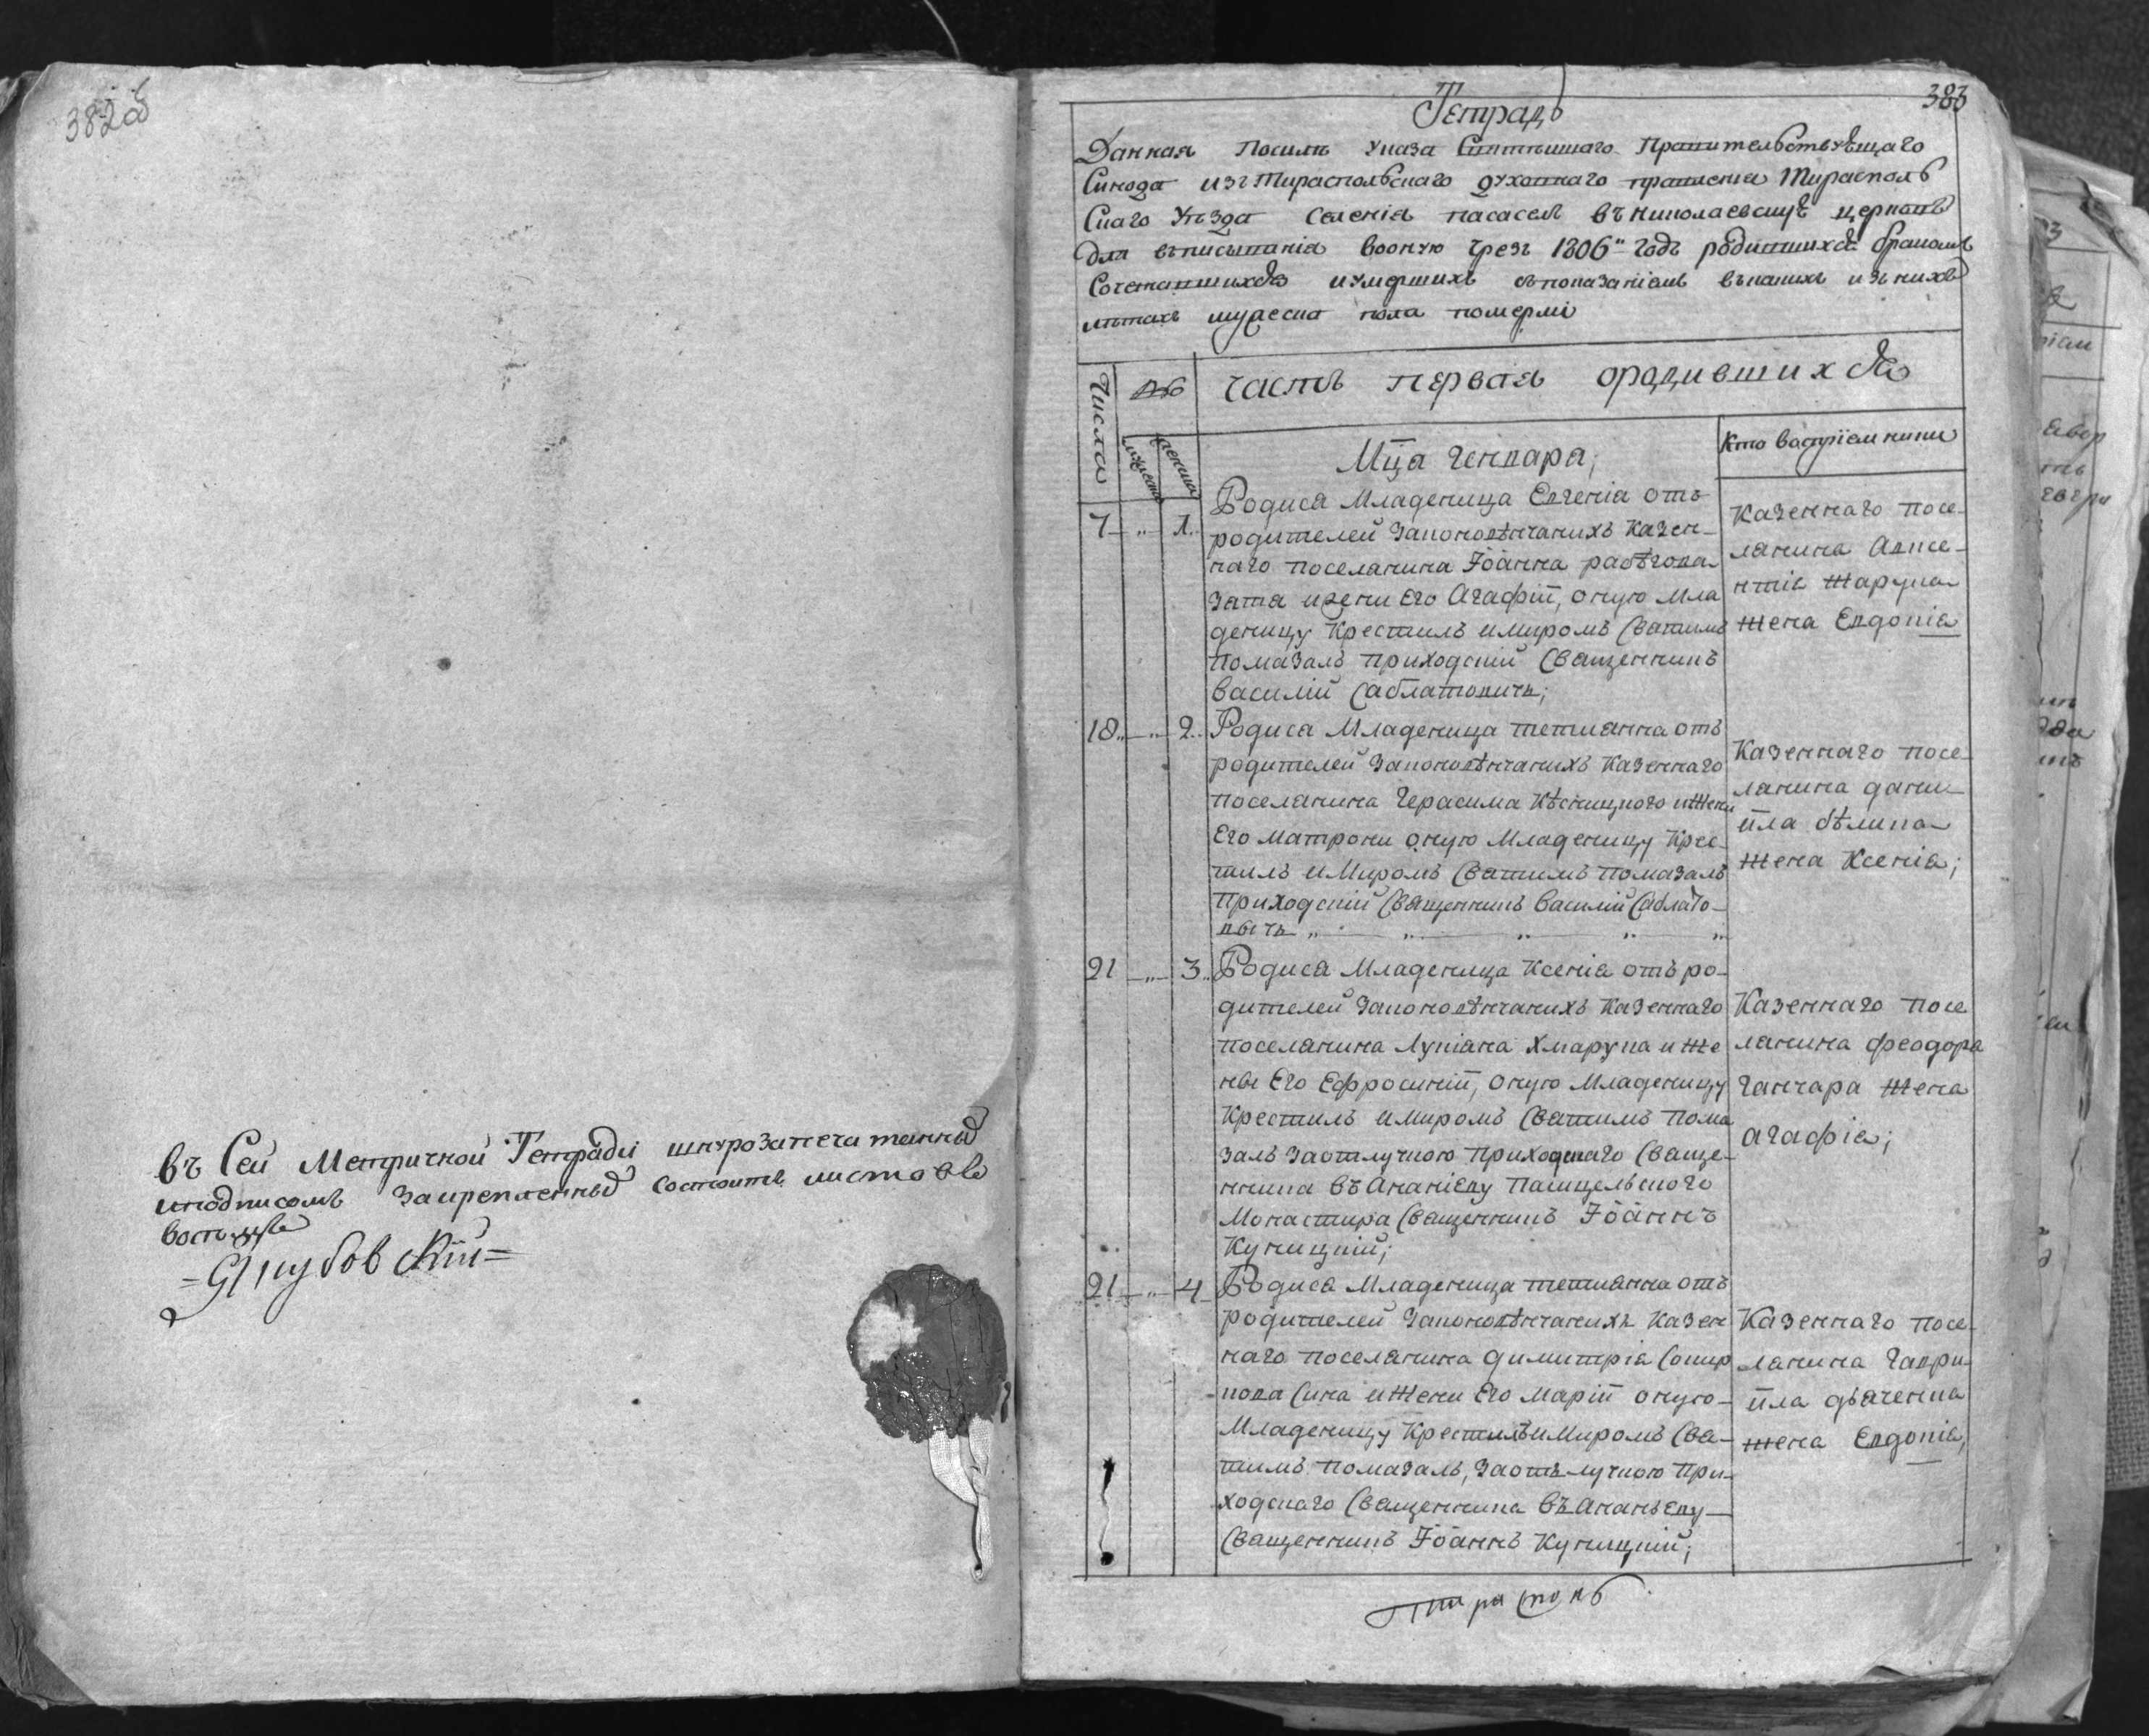 382об
въ Сей Метричной Тетради шнурозапечатанной
и подписомъ закрепленной состоитъ листовъ
восемь
=Якубовскій=
383
Тетрадь
Данная Посилѣ Указа Святѣишаго Правительствующаго
Синода изъ Тираспольскаго духовнаго правления Тирасполь
Скаго Уѣзда Селенія пасасел въ николаевскую церковь
для вписыванія во оную чрезъ 1806 годъ родившихся бракомъ
Сочетавшихся и умершихъ съ показаніемъ въ какихъ изъ нихъ
лѣтахъ мужеска пола померли
Числа
№
часть первая о родившихся
мужеска
женска
Мца Генвара;
Кто восприемники
7 „ 1.
Родиса Младеница Евгенія отъ
родителей законовѣнчанихъ казен-
наго поселанина Іоанна
зата и жени Его Агафіи, оную мла
деницу Крестилъ и миромъ Сватимъ
помазалъ приходскій Сващенникъ
василій Саблатовичъ;
Казеннаго посе-
ланина Авксе-
нтіа
жена Евдокіа
18 „ 2.
Родиса Младеница тетианна отъ
родителей законовѣнчанихъ Казеннаго
поселанина Герасима Кѣсницкого и жени
Его матрони оную Младеницу Крес-
тилъ и Миромъ Сватимъ помазалъ
Приходскій Сващенникъ василій Саблато-
вычъ „ „ „ „ „
Казеннаго посе-
ланина дани-
ила бѣлика
жена Ксеніа;
21 „ 3.
Родиса Младеница Ксеніа отъ ро-
дителей законовѣнчанихъ Казеннаго
поселанина Лукіана Хмарука и же
ны Его Ефросиніи, оную Младеницу
Крестилъ и миромъ Сватимъ пома
залъ за отлучкою приходскаго Сваще-
нника въ Ананіеву пасицельского
Монастира Сващенникъ Іоаннъ
Куницкій;
Казеннаго посе
ланина феодора
Ганчара жена
агафіа;
21 „ 4
Родиса Младеница тетианна отъ
родителей законовѣнчанихъ Казен
наго поселанина димитріа Сокир
кова Сина и жени Его Маріи оную
Младеницу Крестилъ и Миромъ Сва-
тимъ помазалъ, за отълучкою При-
ходскаго Сващенника въ Ананьеву
Сващенникъ Іоаннъ Куницкій;
Казеннаго посе-
ланина Гаври-
ила дьаченка
жена Евдокіа,